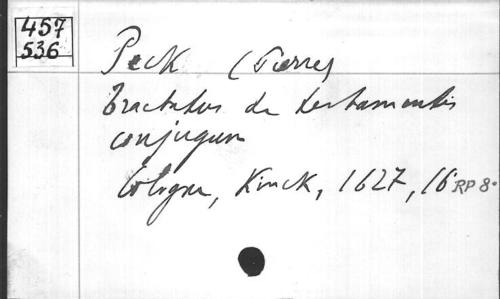 457
536
Peck (Pierre)
Tractatus de testamentis
conjugum
Cologne, Kinck, 1627, 16° RP 8°